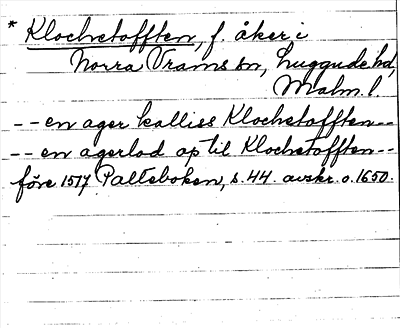 * Klochetofften, f. åker i
Norra Vrams sn, Luggude hd,
Malm. l.
-- en ager kalliss Klochetofften --
-- en agerlod op til Klochetofften --
före 1517 Palteboken, s. 44. avskr. o. 1650.